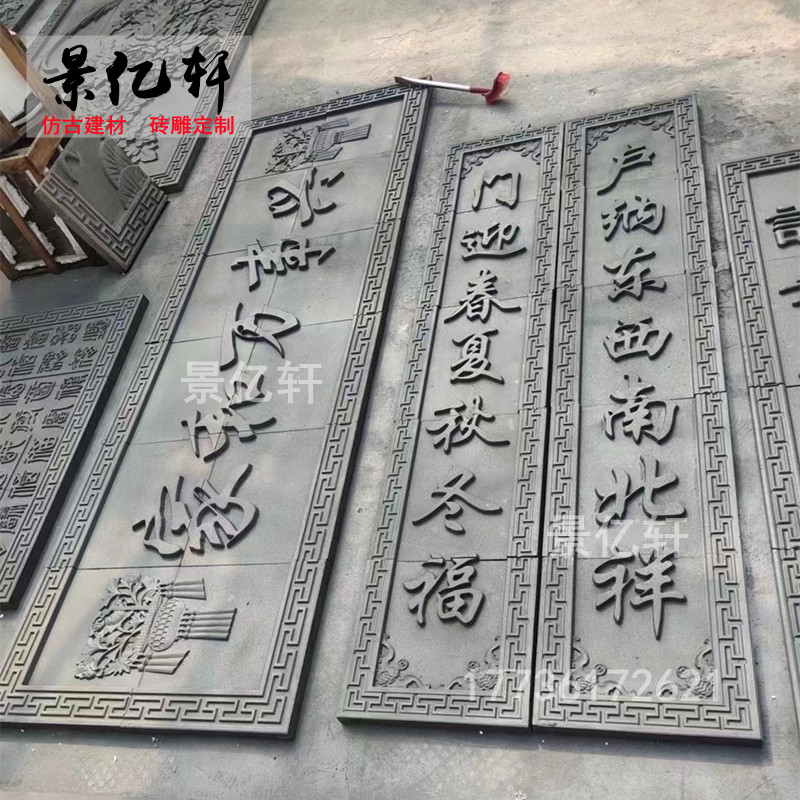 景亿轩
仿古建材 砖雕定制
家和万事兴
门迎春夏秋冬福
户纳东西南北祥
景亿轩
景亿轩
17736172621